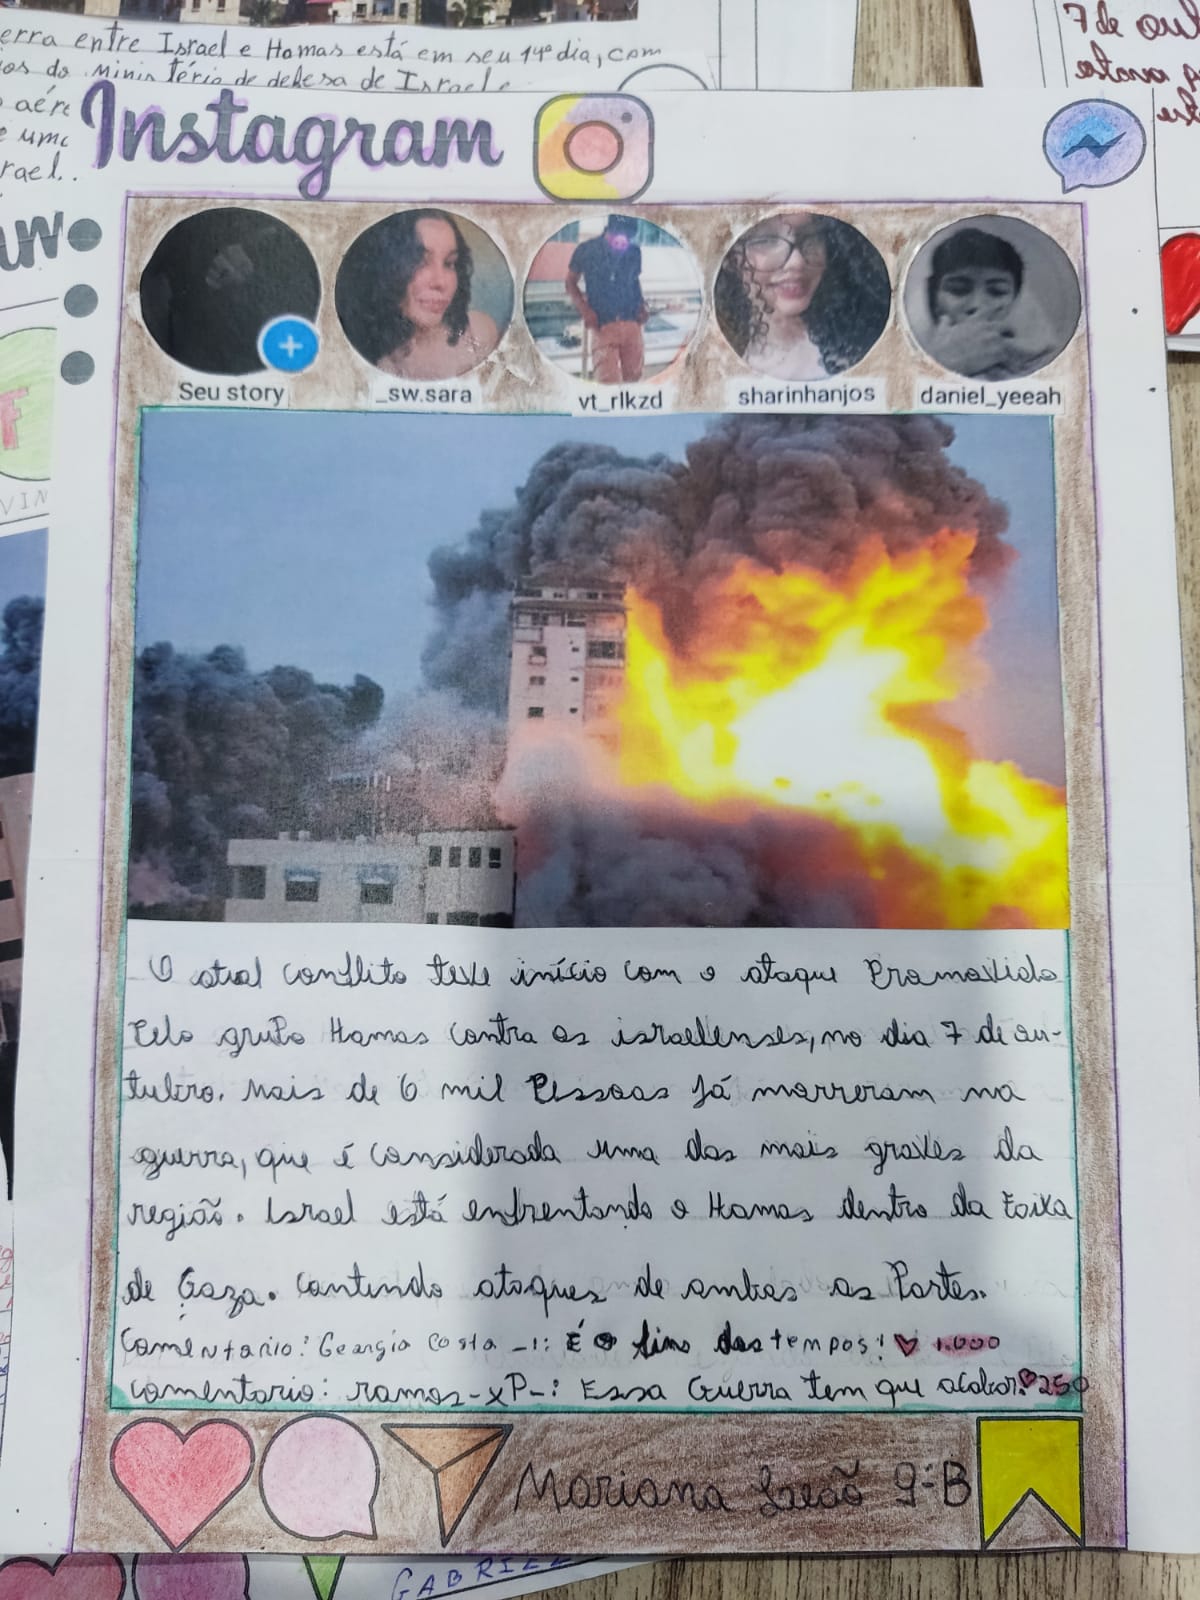 erra entre Israel e Hamas está em seu 14º dia, com
ios do Ministério de defesa de Israel
aére
e uma
rael.
7 de out
estava
Instagram
Seu story
_sw.sara
vt_rlkzd
sharinhanjos
daniel_yeeah
VIN
O atual conflito teve início com o ataque Promovido
Pelo grupo Hamas contra os israelenses, no dia 7 de ou-
tubro. Mais de 6 mil Pessoas já morreram na
guerra, que é considerada uma das mais graves da
região. Israel está enfrentando o Hamas dentro da Faixa
de Gaza. Contindo ataques de ambas as Partes.
Comentario: Georgia Costa _1: É o fim dos tempos! 1.000
comentario: ramos-xP-: Essa Guerra tem que acabar! 250
Mariana Leão 9:B
GABRIEL